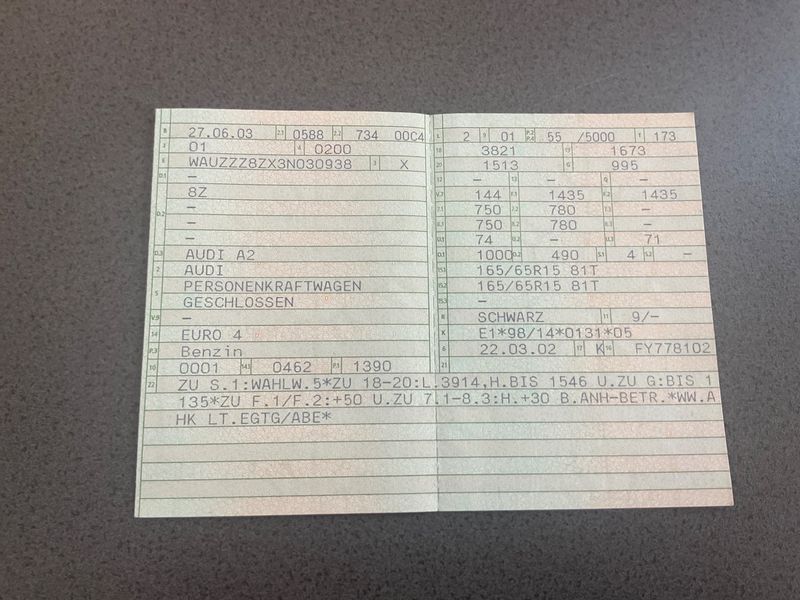 B 27.06.03 2.1 0588 2.2 734 00C4
J 01 4 0200
E WAUZZZ8ZX3N030938 3 X
D.1 –
8Z
–
D.2 –
–
D.3 AUDI A2
2 AUDI
5 PERSONENKRAFTWAGEN
GESCHLOSSEN
V.9 –
14 EURO 4
P.3 Benzin
10 0001 14.1 0462 P.1 1390
L 2 9 01 P.2 P.4 55 /5000 T 173
18 3821 19 1673
20 1513 G 995
12 – 13 – Q –
V.7 144 F.1 1435 F.2 1435
7.1 750 7.2 780 7.3 –
8.1 750 8.2 780 8.3 –
U.1 74 U.2 – U.3 71
O.1 1000 O.2 490 S.1 4 S.2 –
15.1 165/65R15 81T
15.2 165/65R15 81T
15.3 –
R SCHWARZ 11 9/–
K E1*98/14*0131*05
6 22.03.02 17 K 16 FY778102
21
22 ZU S.1:WAHLW.5*ZU 18-20:L.3914,H.BIS 1546 U.ZU G:BIS 1
135*ZU F.1/F.2:+50 U.ZU 7.1-8.3:H.+30 B.ANH-BETR.*WW.A
HK LT.EGTG/ABE*